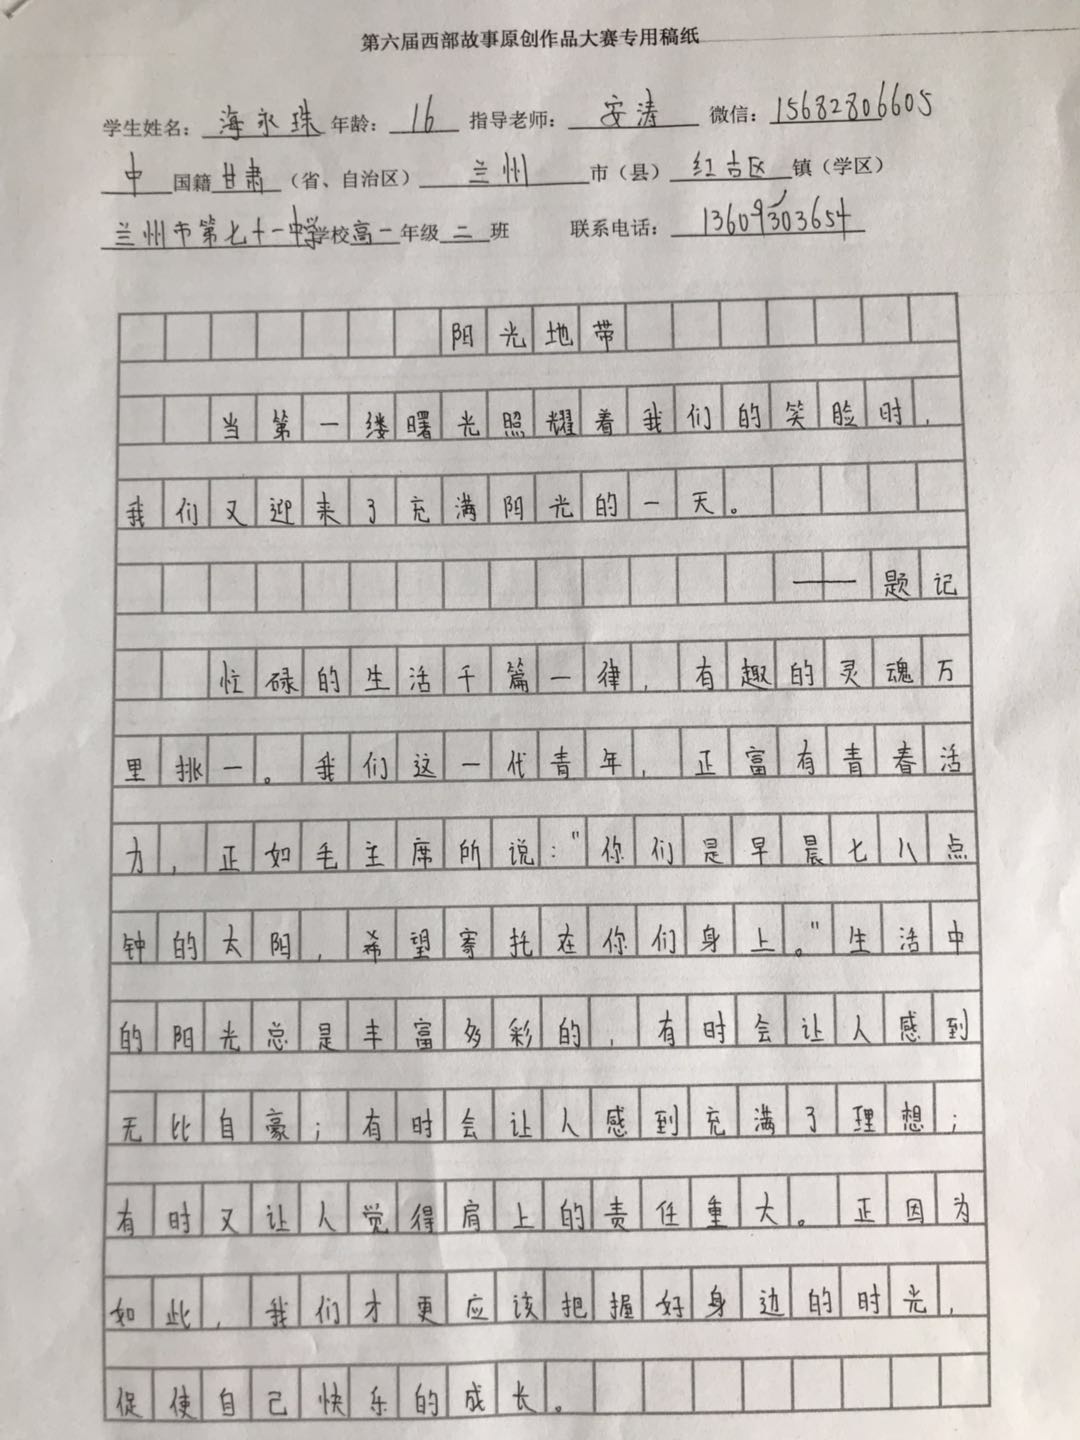 第六届西部故事原创作品大赛专用稿纸
学生姓名：海永珠 年龄：16 指导老师：安涛 微信：15682806605
中国籍甘肃（省、自治区）兰州市（县）红古区镇（学区）
兰州市第七十一中学学校高一年级二班 联系电话：13609303654
阳光地带
当第一缕曙光照耀着我们的笑脸时，
我们又迎来了充满阳光的一天。
——题记
忙碌的生活千篇一律，有趣的灵魂万
里挑一。我们这一代青年，正富有青春活
力，正如毛主席所说："你们是早晨七八点
钟的太阳，希望寄托在你们身上。"生活中
的阳光总是丰富多彩的，有时会让人感到
无比自豪；有时会让人感到充满了理想；
有时又让人觉得肩上的责任重大。正因为
如此，我们才更应该把握好身边的时光，
促使自己快乐的成长。